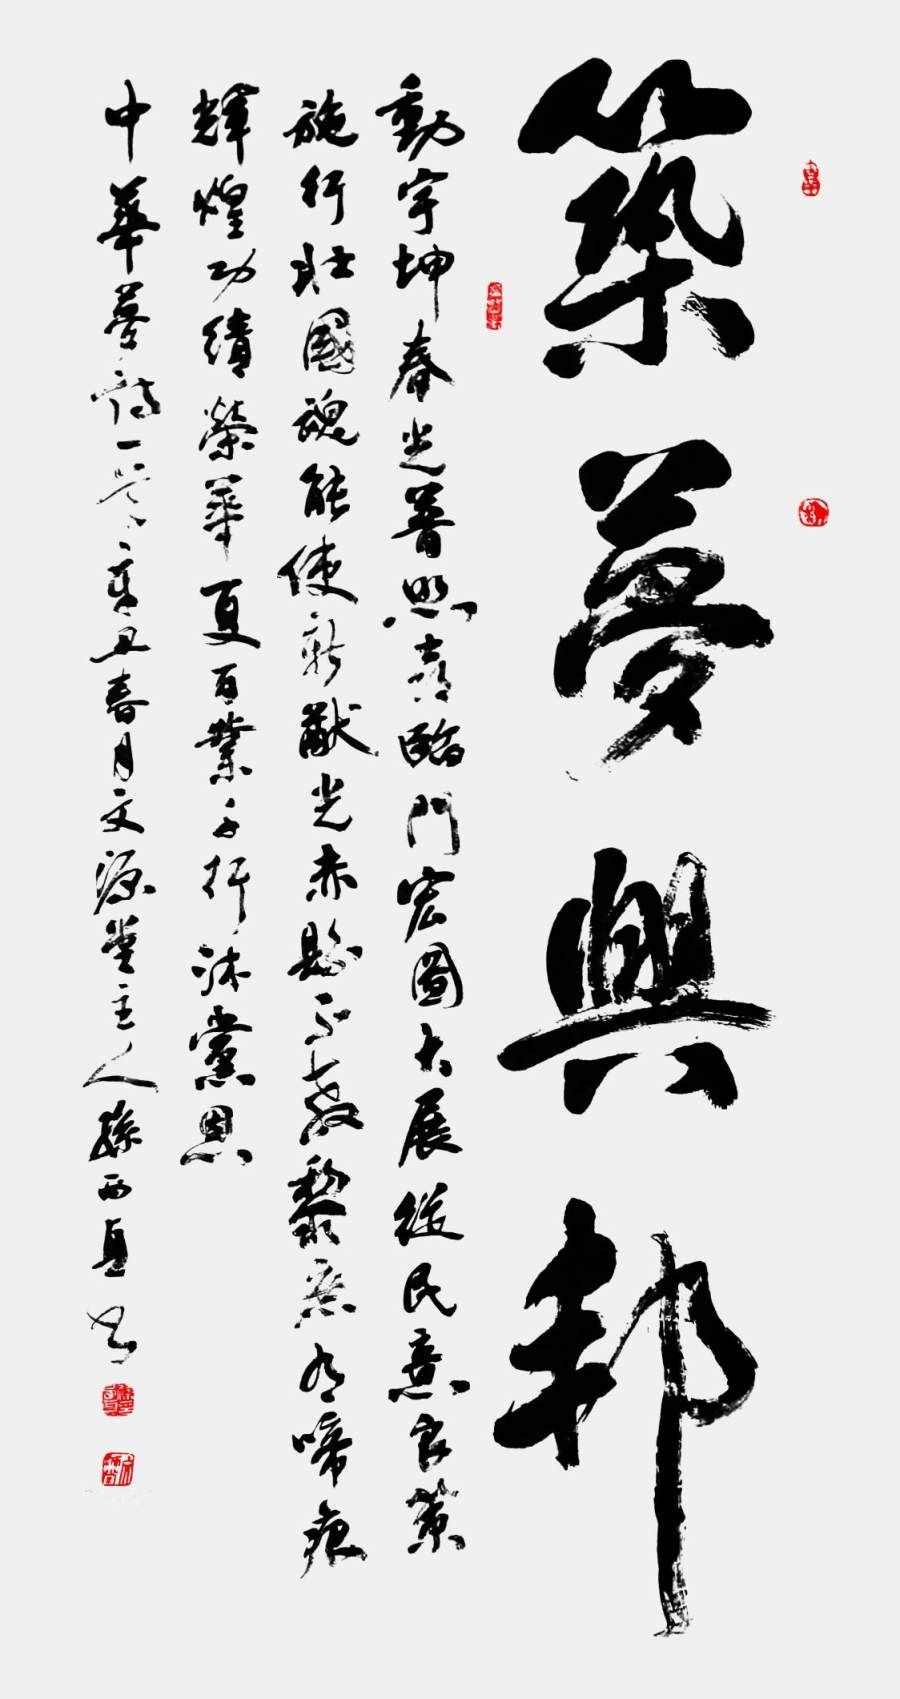 築夢興邦
動宇坤春光普照喜臨門宏圖大展從民意良策
施行壯國魂能使新猷光赤縣不教黎庶有啼痕
輝煌功績榮華夏百業千行沐黨恩
中華夢詩一首辛丑春月文源堂主人孫西書